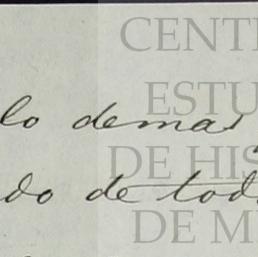 CENT
ESTU
lo demas
DE HIS
do de tod
DE M